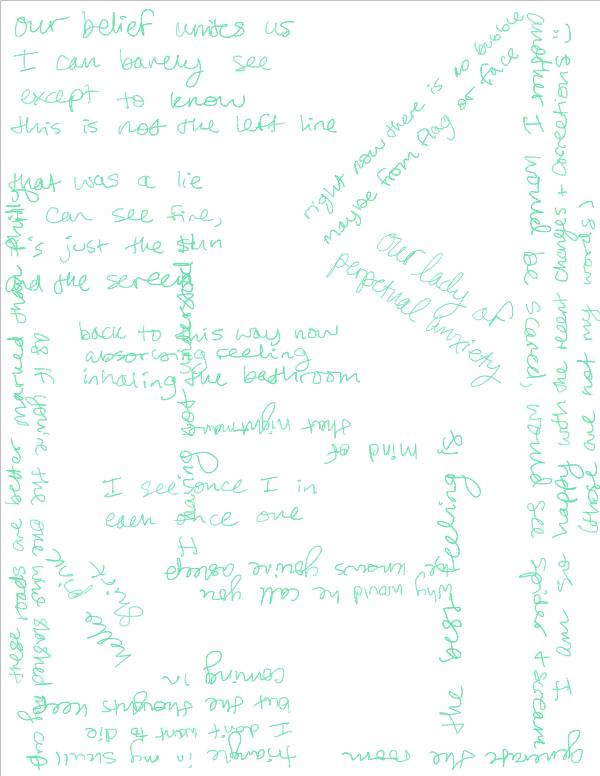 our belief unites us
I can barely see
except to know
this is not the left line
that was a lie
can see fire,
it's just the sun
and the screen
right now there is no bubble
maybe from flag or face
our lady of
perpetual anxiety
back to this way now
absorbing feeling
inhaling the bathroom
that nightmare
mind of
I see once I in
each once one
he knows you're asleep
why would he call you
coming in
but the thoughts keep
I don't want to die
triangle in my skull
generate the room
the best feeling is
If having not understood
these roads are better marked than Philly
as if you're the one who slashed my cup
hello pink
another I would be scared, would see spider + scream
I am so happy with the recent changes + corrections! :)
(those are not my words)